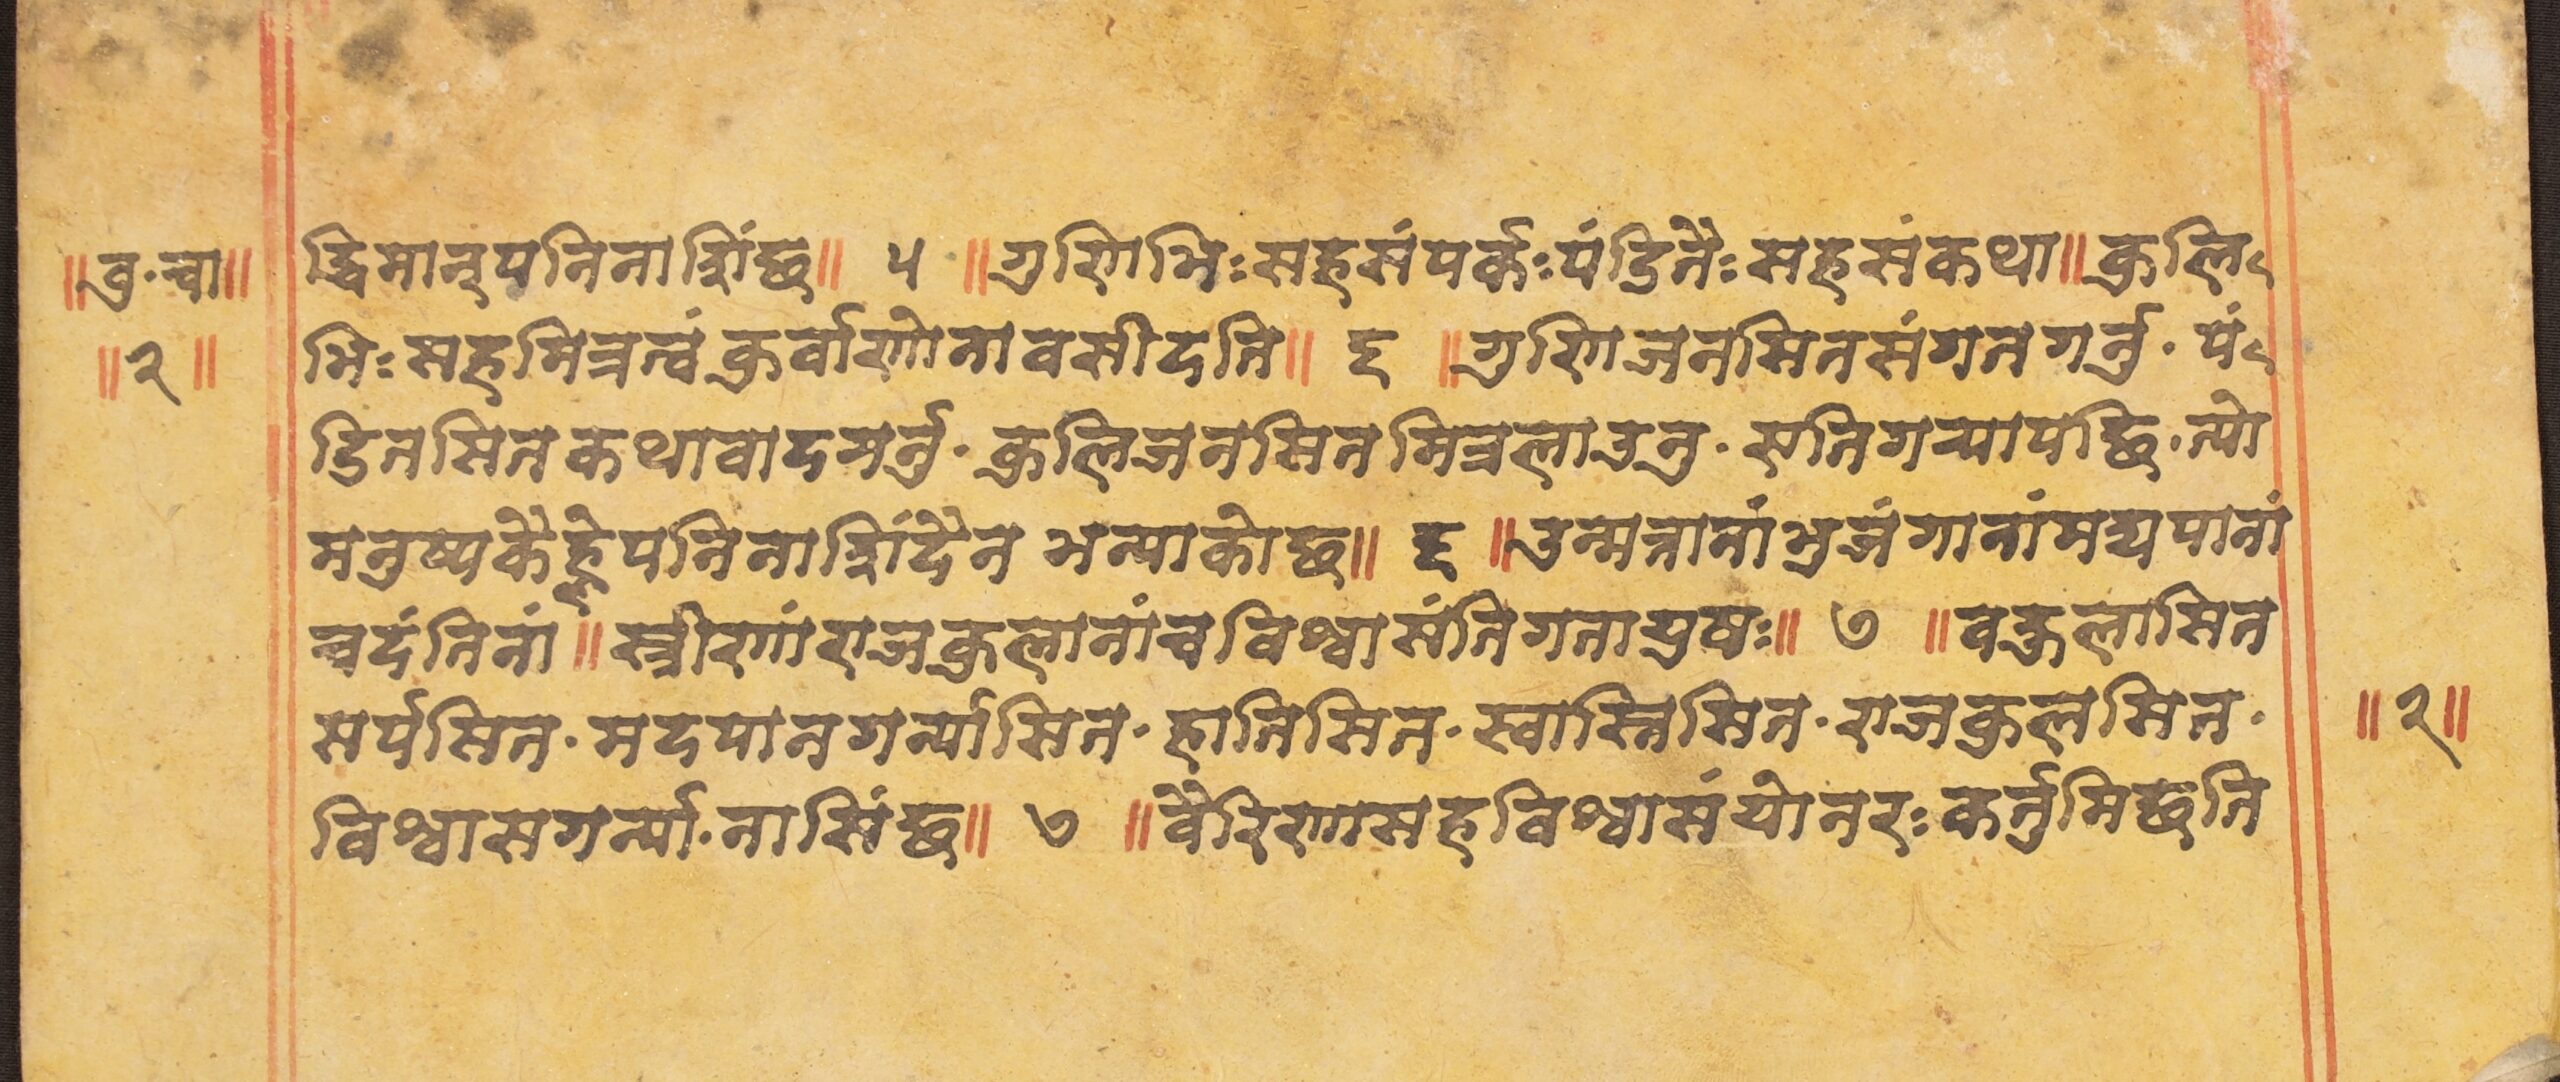 ॥वृ·चा॥ द्धिमान्पनिनाञिंछ॥ ५ ॥गुणिभिःसहसंपर्कःपंडितैःसहसंकथा॥कुलि
॥२॥ भिःसहमित्रत्वंकुर्वाणोनावसीदति॥ ६ ॥गुणिजनसितसंगतगर्नु·पं
डितसितकथावादगर्नु·कुलिजनसितमित्रलाउनु·एतिगर्‍यापछि·त्यो
मनुष्यकैह्लेपनिनाञिंदैन भन्याकोछ॥ ६ ॥उन्मत्तानांभुजंगानांमद्यपानां
चदंतिनां॥स्त्रीणांराजकुलानांचविश्वासंतिगतायुषः॥ ७ ॥वहुलासित
सर्पसित·मदपानगर्न्यासित·हात्तिसित·स्वास्निसित·राजकुलसित·
॥२॥
विश्वासगर्न्या·नासिंछ॥ ७ ॥वैरिणासहविश्वासंयोनरःकर्तुमिछति